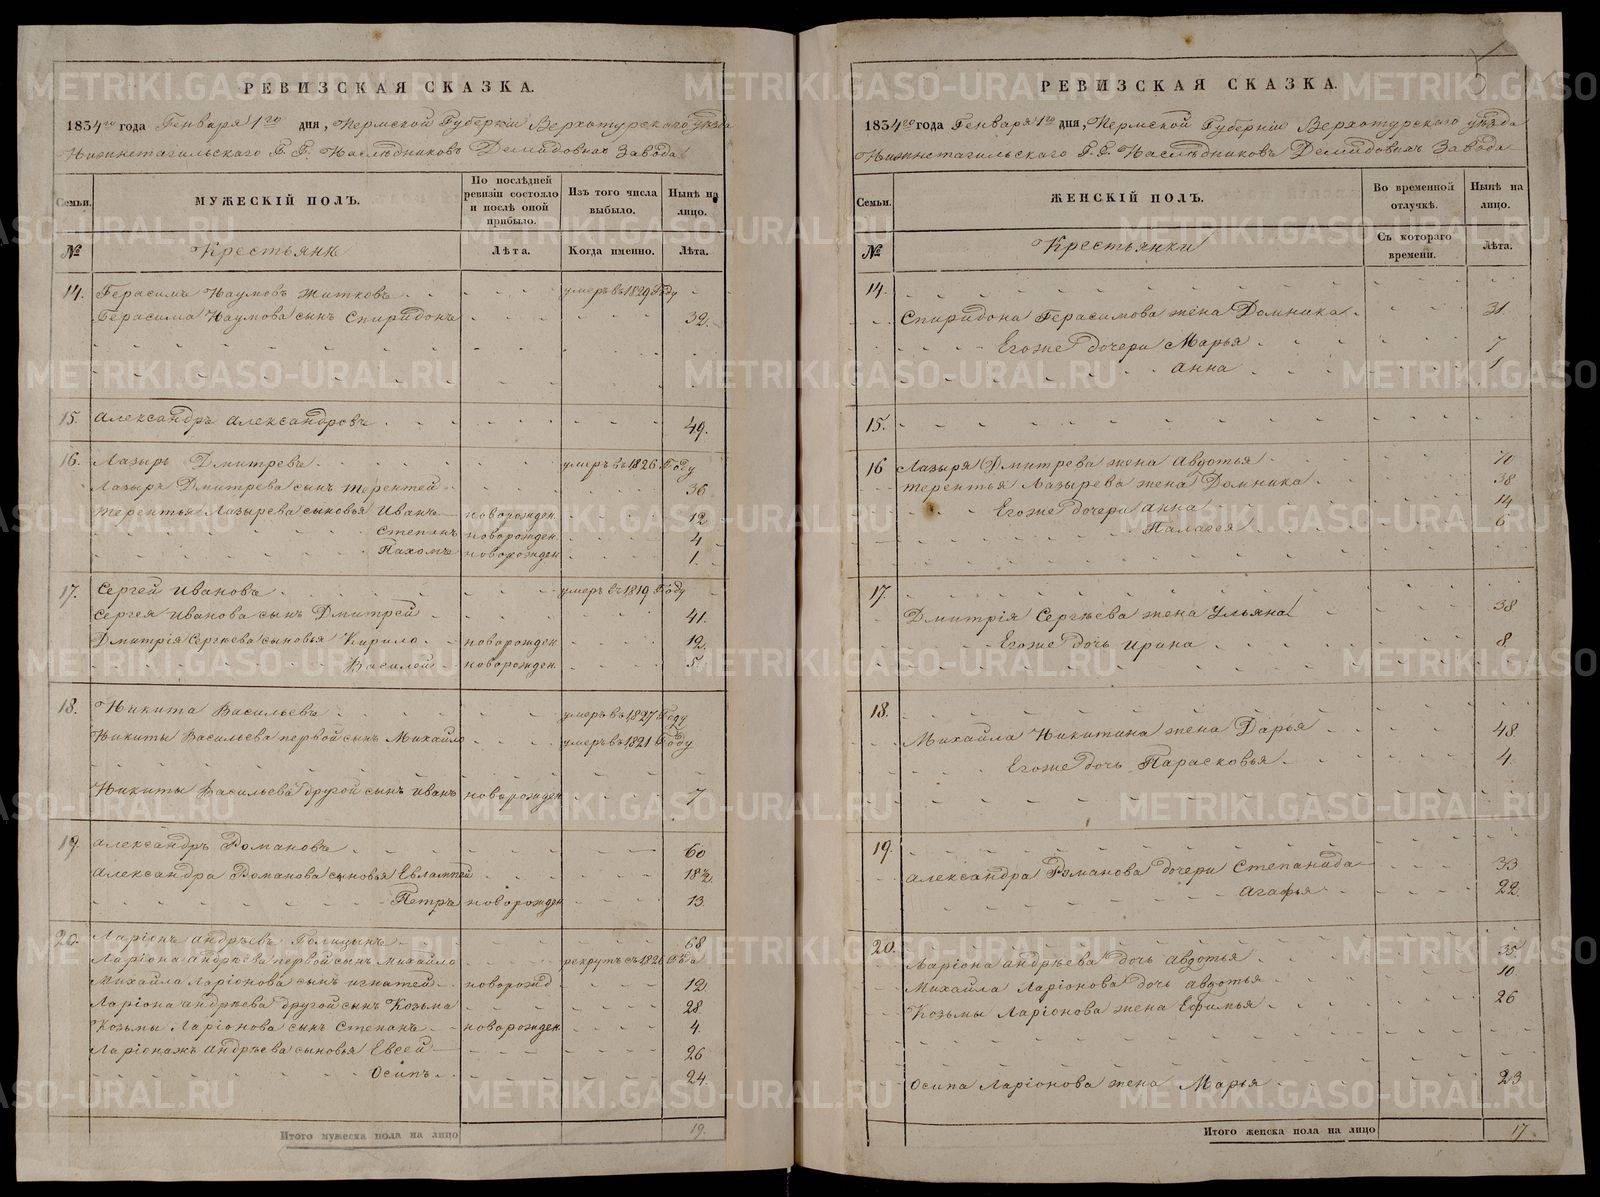 РЕВИЗСКАЯ СКАЗКА.
1834го года Генваря 1го дня, Пермской Губернии Верхотурского уѣзда
Нижнетагильского Г.Г. Наслѣдниковъ Демидовых Завода
Семьи. МУЖЕСКІЙ ПОЛЪ. По послѣдней ревизіи состояло и послѣ оной прибыло. Изъ того числа выбыло. Нынѣ на лицо.
№ Крестьяне Лѣта. Когда именно. Лѣта.
14. Герасимъ Наумовъ Житковъ умеръ въ 1829 Году
Герасима Наумова сынъ Спиридонъ 32.
15. Александръ Александровъ 49.
16. Лазырь Дмитревъ умеръ въ 1826 Году
Лазыря Дмитрева сынъ Терентей 36
Терентья Лазырева сыновья Иванъ новорожден. 12
Степанъ новорожден. 4
Пахомъ новорожден 1.
17. Сергей Ивановъ умеръ въ 1819 Году
Сергея Иванова сынъ Дмитрей 41.
Дмитрія Сергѣева сыновья Кирило новорожден 12.
Василей новорожден. 5
18. Никита Васильевъ умеръ въ 1827 Году
Никиты Васильева первой сынъ Михайло умеръ въ 1821 Году
Никиты Васильева другой сынъ Иванъ новорожден 7
19. Александръ Романовъ 60
Александра Романова сыновья Евлампей 18½
Петръ новорожден 13.
20. Ларіонъ Андрѣевъ Голицынъ 68
Ларіона Андрѣева первой сынъ Михайло рекрутъ съ 1826 Года
Михайла Ларіонова сынъ Игнатей новорожд 12
Ларіона Андрѣева другой сынъ Козьма 28
Козьмы Ларіонова сынъ Степанъ новорожден 4.
Андрѣева сыновья Евсей 26
Осипъ 24.
Итого мужеска пола на лицо 19.
РЕВИЗСКАЯ СКАЗКА.
1834го года Генваря 1го дня, Пермской Губерніи Верхотурскаго уѣзда
Нижнетагильскаго Г.Г. Наслѣдниковъ Демидовых Завода
Семьи. ЖЕНСКІЙ ПОЛЪ. Во временной отлучкѣ. Нынѣ на лицо.
№ Крестьянки Съ котораго времени. Лѣта.
14.
Спиридона Герасимова жена Домника 31
Егоже дочери Марья 7
Анна 1
15.
16 Лазыря Дмитрева жена Авдотья 70
Терентья Лазырева жена Домника 38
Егоже дочери Анна 14
Палагея 6
17.
Дмитрія Сергѣева жена Ульяна 38
Егоже дочь Ирина 8
18.
Михайла Никитина жена Дарья 48.
Егоже дочь Парасковья 4
19.
Александра Романова дочери Степанида 33
Агафья 22.
20.
Ларіона Андрѣева дочь Авдотья 35
Михайла Ларіонова дочь Авдотья 10
Козьмы Ларіонова жена Ефимья 26
Осипа Ларіонова жена Марья 23
Итого женска пола на лицо 17
METRIKI.GASO-URAL.RU